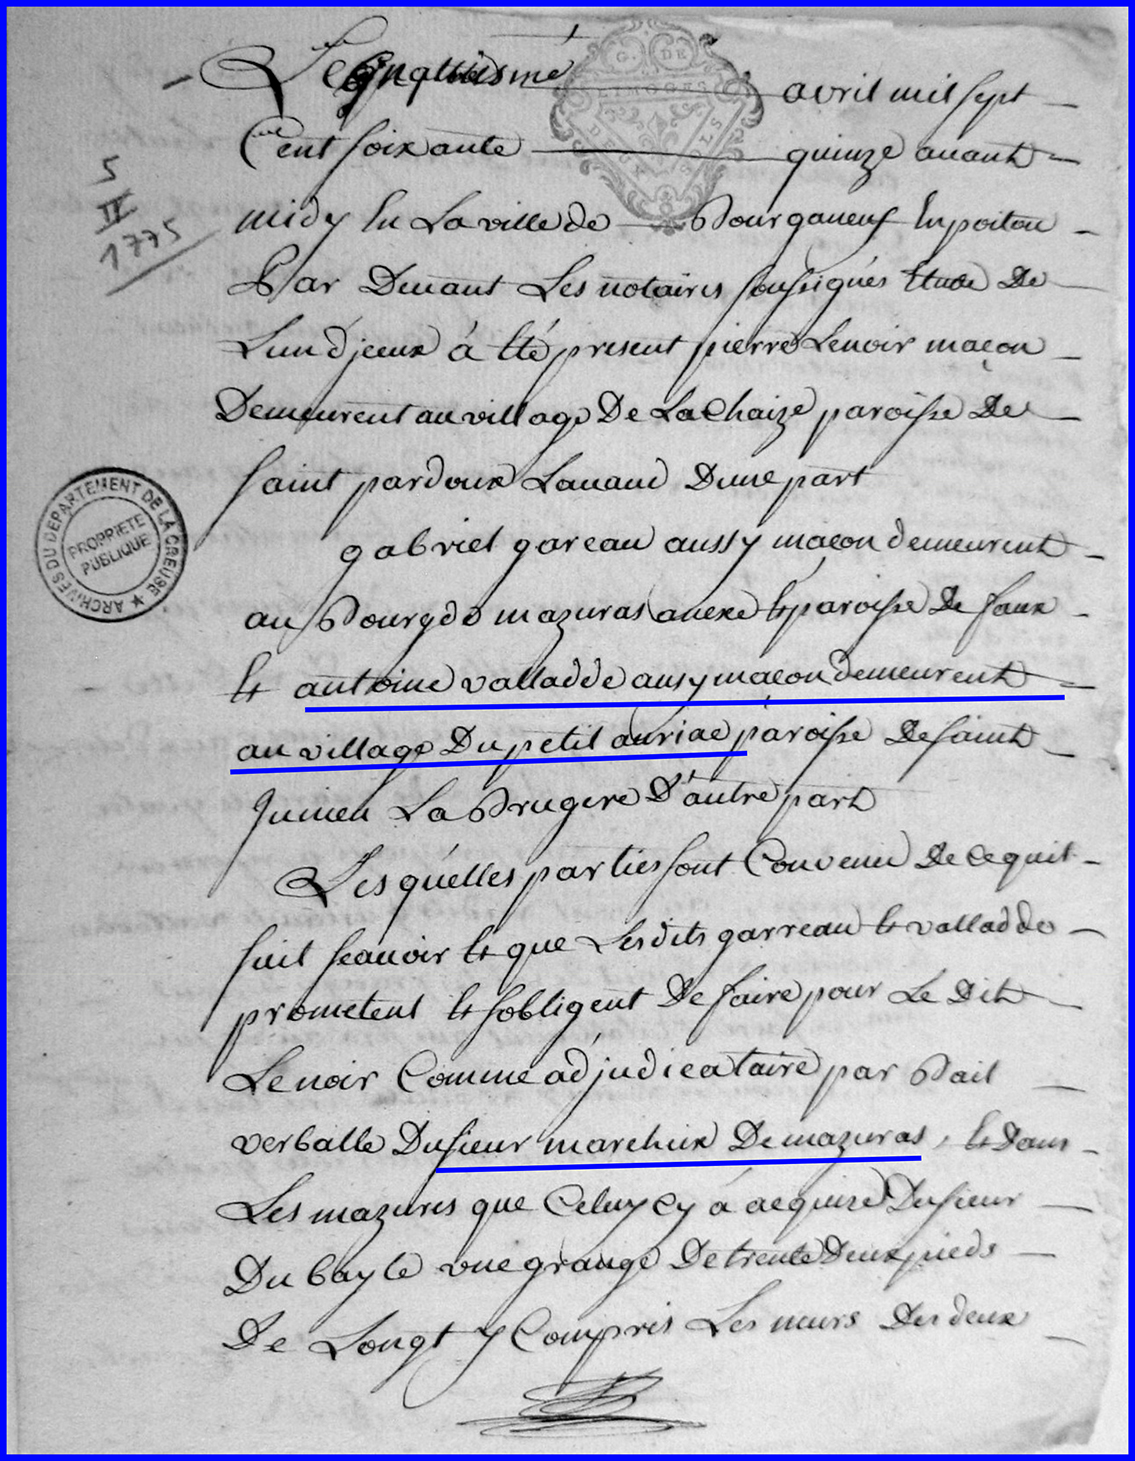 Le Cinquiesme avril mil sept
Cent soixante quinze avant
midy En La ville de Bourganeuf En poitou
5
IV
1775
Par Devant Les notaires soussignés Etude De
L'un d'jceux à Eté present pierre Lenoir maçon
Demeurent au village De La Chaize paroisse De
saint pardoux Lavaud D'une part
gabriel gareau aussy maçon demeurent
au Bourg de mazuras anexe Et paroisse De faux
Et antoine valladde ausy maçon demeurent
au village Du petit auriac paroisse De saint
Junien La Brugere D'autre part
Lesquelles parties sont Convenu De Ce quil
suit scavoir Et que Lesdits garreau Et valladde
prometent Et sobligent De faire pour Le Dit
Lenoir Comme adjudicataire par Bail
verballe Du sieur marchux De mazuras, Et Dans
Les mazures que Celuy Cy á acquize Du sieur
Du bayle une grange De trente Deux pieds
De Longt y Compris Les murs Des deux
G. DE
LIMOGES
ARCHIVES DU DEPARTEMENT DE LA CREUSE
PROPRIETE
PUBLIQUE